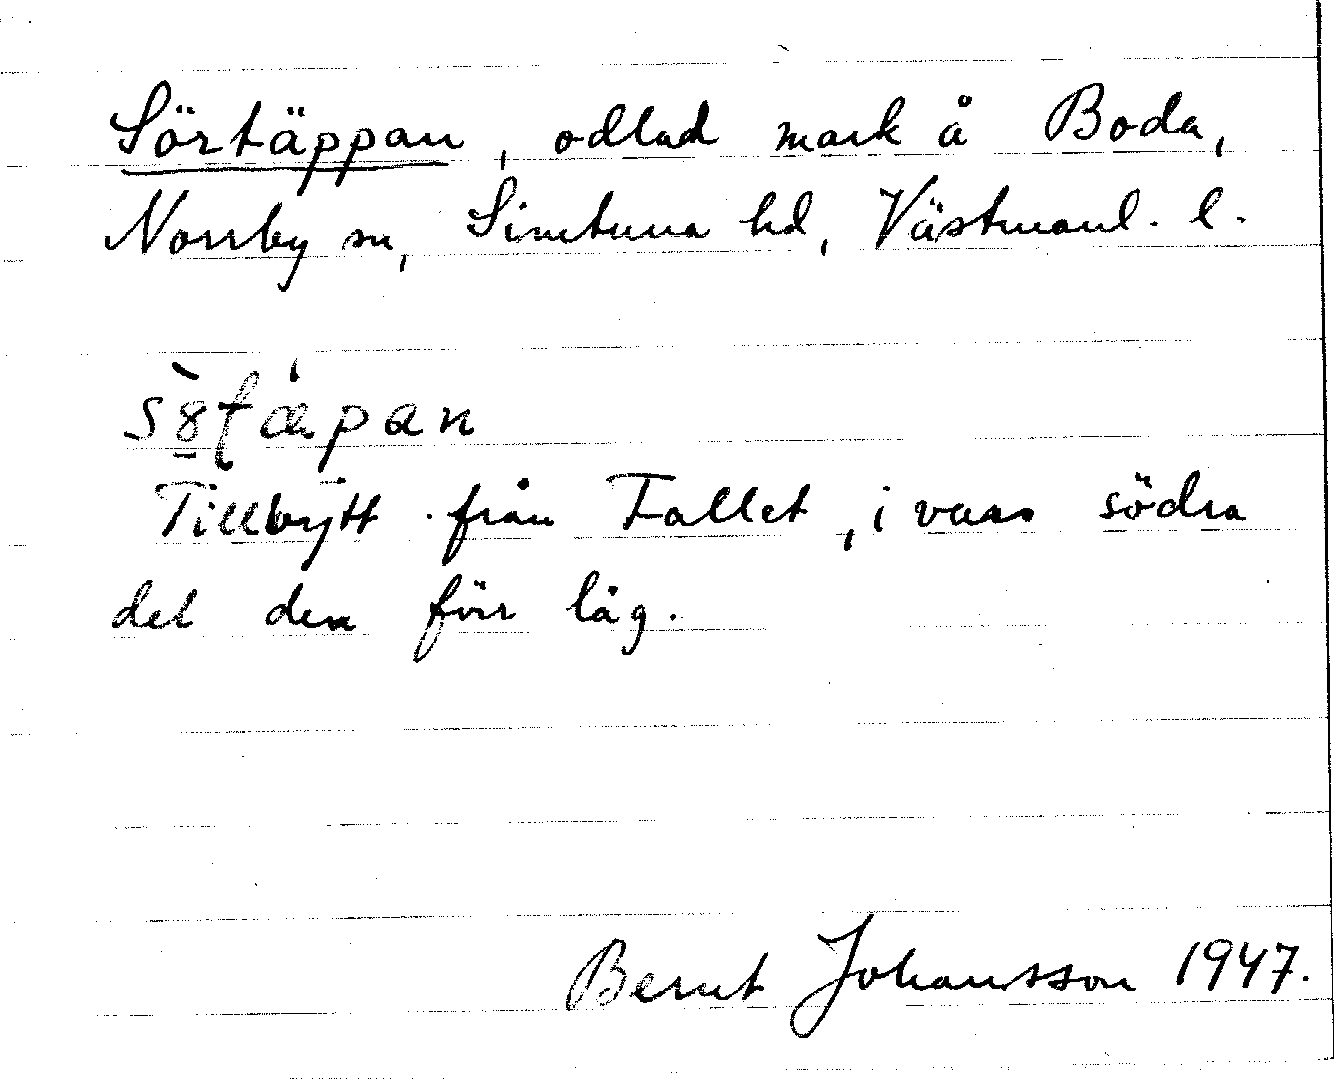 Sörtäppan, odlad mark å Boda,
Norrby sn, Simtuna hd, Västmanl. l.
sö̀ʈä́pan
Tillbytt från Fallet, i vars södra
del den förr låg.
Bernt Johansson 1947.